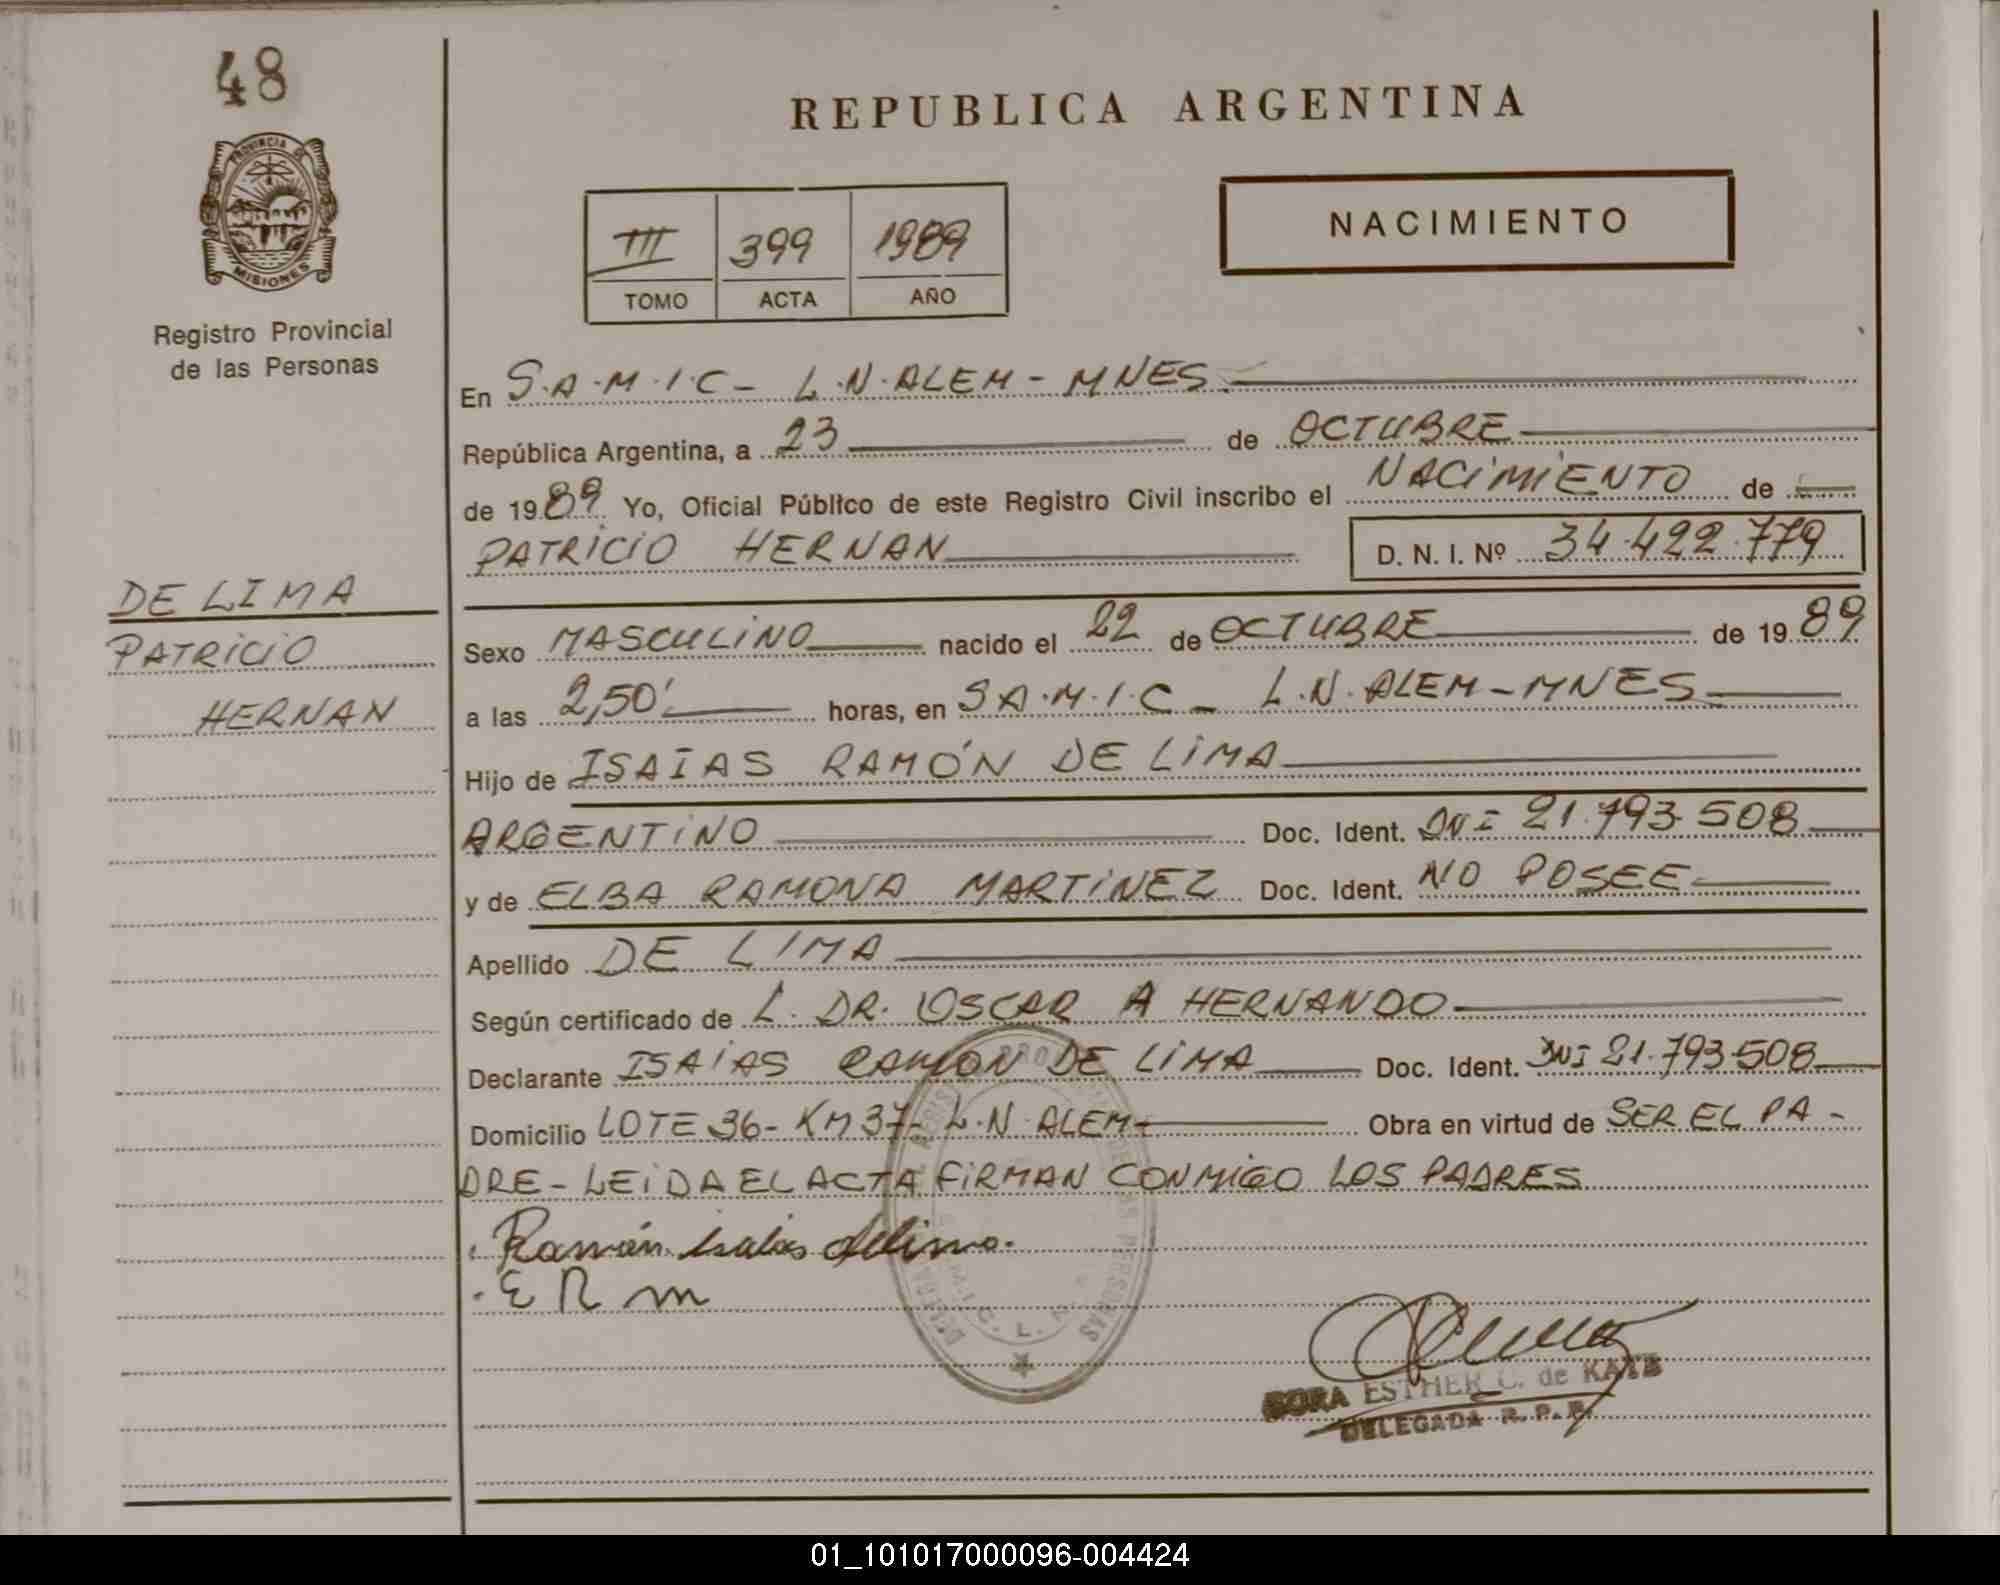 48
PROVINCIA DE
MISIONES
Registro Provincial
de las Personas
DE LIMA
PATRICIO
HERNAN
REPUBLICA ARGENTINA
III 399 1989
TOMO ACTA AÑO
NACIMIENTO
En S.A.M.I.C - L.N.ALEM - MNES.
República Argentina, a 23 de OCTUBRE
de 1989 Yo, Oficial Público de este Registro Civil inscribo el NACIMIENTO de
PATRICIO HERNAN D. N. I. Nº 34.422.779
Sexo MASCULINO nacido el 22 de OCTUBRE de 1989
a las 2,50' horas, en S.A.M.I.C - L.N.ALEM-MNES
Hijo de ISAÍAS RAMÓN DE LIMA
ARGENTINO Doc. Ident. DNI 21.793.508
y de ELBA RAMONA MARTINEZ Doc. Ident. NO POSEE
Apellido DE LIMA
Según certificado de L. DR. OSCAR A HERNANDO
Declarante ISAIAS RAMON DE LIMA Doc. Ident. DNI 21.793.508
Domicilio LOTE 36- KM 37- L.N. ALEM- Obra en virtud de SER EL PA-
DRE - LEIDA EL ACTA FIRMAN CONMIGO LOS PADRES
Ramón Isaias delima.
E R m
ESTHER C. de KATZ
DELEGADA R. P. P.
01_101017000096-004424